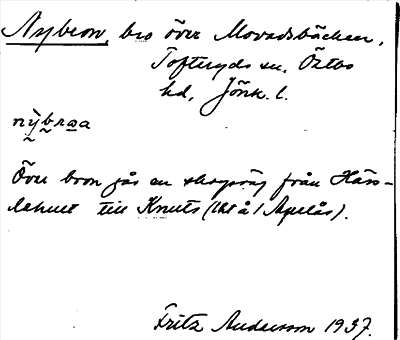 Nybron, bro över Movadsbäcken,
Tofteryds sn. Östbo
hd, Jönk. l.
nỳbrωa
Över bron går en skogsväg från Häss-
lehult till Knuts (lht å / Agelås).
Fritz Anderson 1937.